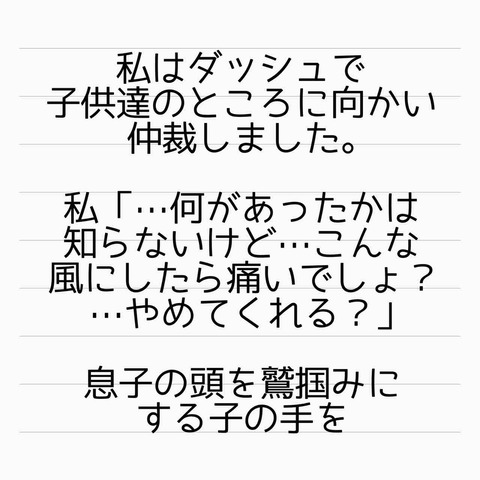 私はダッシュで
子供達のところに向かい
仲裁しました。
私「…何があったかは
知らないけど…こんな
風にしたら痛いでしょ？
…やめてくれる？」
息子の頭を鷲掴みに
する子の手を